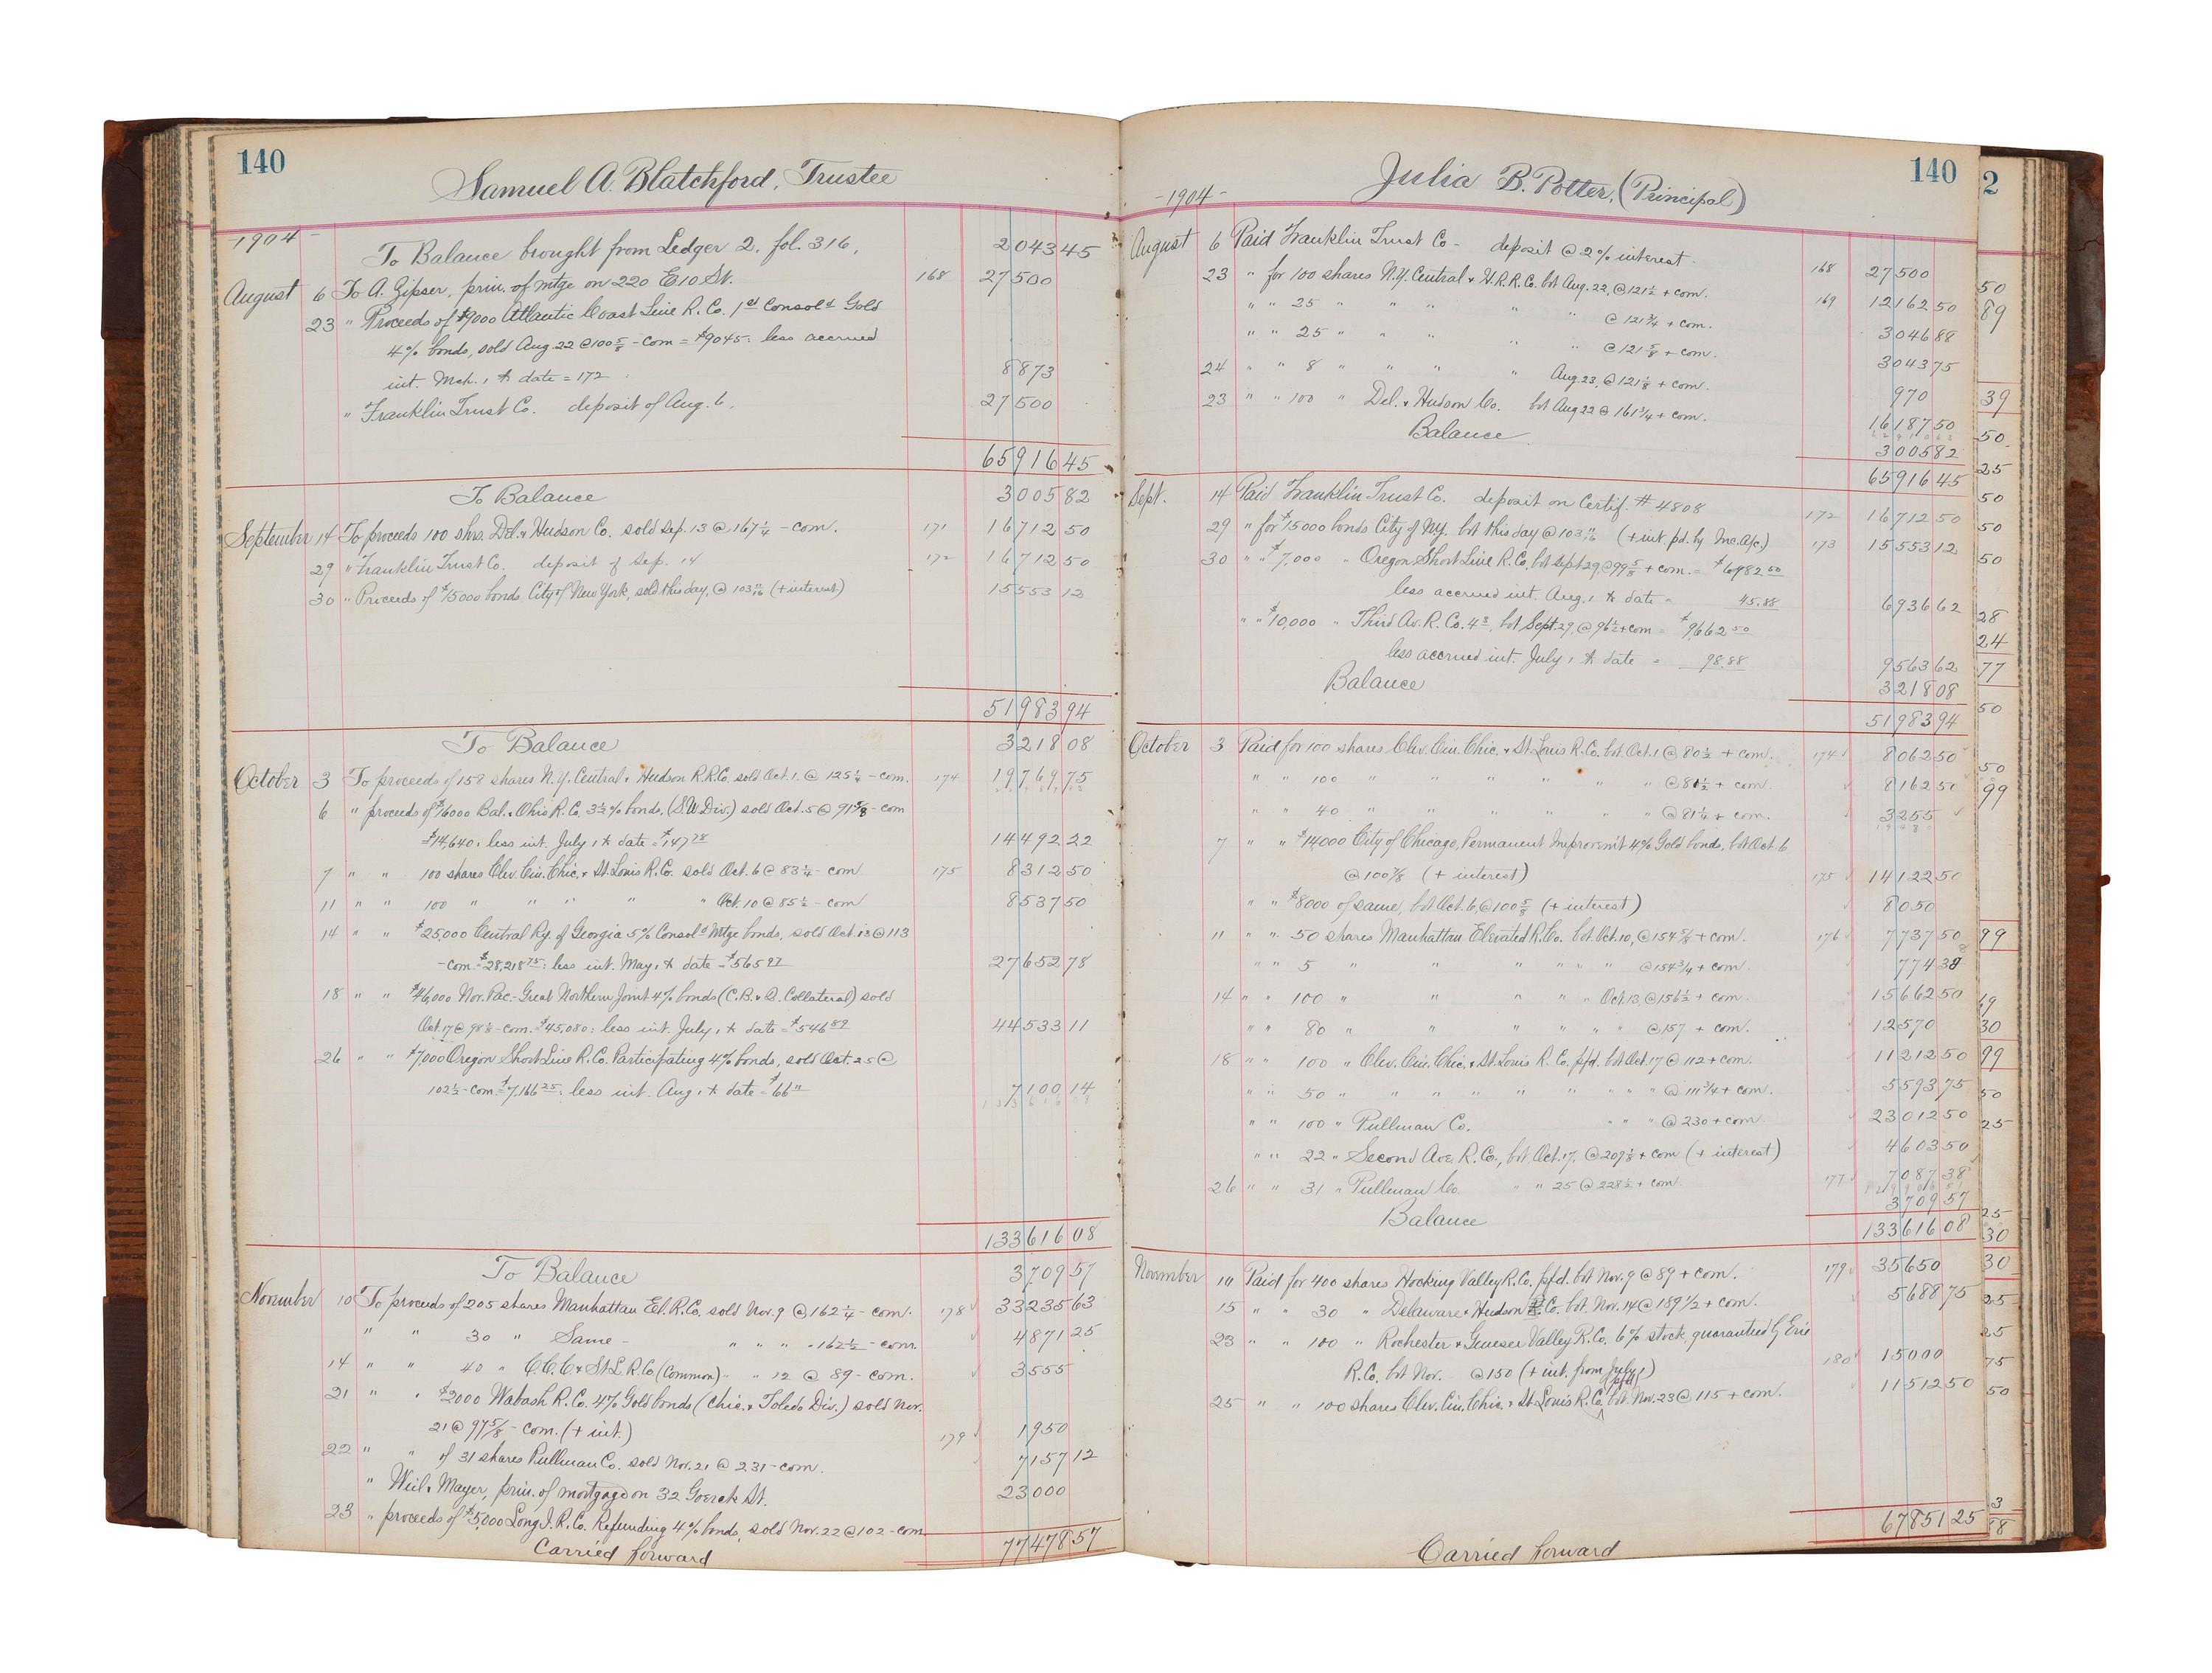 140
Samuel A. Blatchford, Trustee
-1904-
To Balance brought from Ledger 2. fol. 316, 2043 45
August 6 To A. Zipser, prin. of mtge on 220 E 10 St. 168 27500
23 " Proceeds of $9000 Atlantic Coast Line R. Co. 1st Consold Gold
4% bonds, sold Aug. 22 @ 100 5/8 - Com = $9045: less accrued
int. Mch. 1 to date = 172 8873
" Franklin Trust Co. deposit of Aug. 6, 27500
65916 45
To Balance 3005 82
September 14 To proceeds 100 shrs. Del. & Hudson Co. sold Sep. 13 @ 167 1/4 - com. 171 16712 50
29 " Franklin Trust Co. deposit of Sep. 14 172 16712 50
30 " Proceeds of $15000 bonds City of New York, sold this day, @ 103 11/16 (+ interest) 15553 12
51983 94
To Balance 3218 08
October 3 To proceeds of 158 shares N.Y. Central & Hudson R.R.Co. sold Oct. 1. @ 125 1/4 - com. 174 19769 75
6 " proceeds of $16000 Bal. & Ohio R. Co. 3 1/2 % bonds, (S.W. Div.) sold Oct. 5 @ 91 5/8 - com
= $14,640: less int. July 1 to date = $147 78 14492 22
7 " " 100 shares Clev. Cin. Chic. & St. Louis R. Co. sold Oct. 6 @ 83 1/4 - com 175 8312 50
11 " " 100 " " " " " Oct. 10 @ 85 1/2 - com 8537 50
14 " " $25,000 Central Ry. of Georgia 5% Consold Mtge bonds, sold Oct. 13 @ 113
- com. = $28,218 75: less int. May 1 to date = $565 97 27652 78
18 " " $46,000 Nor. Pac.- Great Northern Joint 4% bonds (C.B. & Q. Collateral) sold
Oct. 17 @ 98 1/8 - com. = $45,080: less int. July 1 to date = $546 89 44533 11
26 " " $7000 Oregon Short Line R. Co. Participating 4% bonds, sold Oct. 25 @
102 1/2 - com. = $7,166 25: less int. Aug 1 to date = $66 11 7100 14
133616 08
To Balance 3709 57
November 10 To proceeds of 205 shares Manhattan El. R. Co. sold Nov. 9 @ 162 1/4 - com. 178 33235 63
" " 30 " Same - " " " - 162 1/2 - com. 4871 25
14 " " 40 " C.C.C. & St. L. R. Co. (Common) - " 12 @ 89 - com. 3555
21 " " $2000 Wabash R. Co. 4% Gold bonds (Chic. & Toledo Div.) sold Nov.
21 @ 97 5/8 - com. (+ int.) 179 1950
22 " " of 31 shares Pullman Co. sold Nov. 21 @ 231 - com. 7157 12
" Weil & Mayer, prin. of mortgage on 32 Goerck St. 23000
23 " proceeds of $5,000 Long I. R. Co. Refunding 4% bonds, sold Nov. 22 @ 102 - com
Carried forward 77478 57
140
Julia B. Potter, (Principal)
-1904-
August 6 Paid Franklin Trust Co - deposit @ 2% interest - 168 27500
23 " for 100 shares N.Y. Central & H.R.R. Co. bot Aug. 22, @ 121 1/2 + com. 169 12162 50
" " 25 " " " " " @ 121 3/4 + com. 3046 88
" " 25 " " " " " @ 121 5/8 + com. 3043 75
24 " " 8 " " " " Aug. 23, @ 121 1/8 + com. 970
23 " " 100 " Del. & Hudson Co. bot Aug 22 @ 161 3/4 + com. 16187 50
Balance 3005 82
65916 45
Sept. 14 Paid Franklin Trust Co. deposit on Certif. # 4808 172 16712 50
29 " for $15000 bonds City of N.Y. bot this day @ 103 11/16 (+ int. pd. by Inc. a/c.) 173 15553 12
30 " " $7,000 " Oregon Short Line R. Co, bot Sept 29, @ 99 5/8 + com. = $6982 50
less accrued int. Aug. 1 to date = 45.88 6936 62
" " $10,000 " Third Av. R. Co. 4s, bot Sept. 29, @ 96 1/2 + com = $9,662 50
less accrued int. July 1 to date = 98.88 9563 62
Balance 3218 08
51983 94
October 3 Paid for 100 shares Clev. Cin. Chic. & St. Louis R. Co. bot Oct. 1 @ 80 1/2 + com. 174 8062 50
" " 100 " " " " " @ 81 1/2 + com. 8162 50
" " 40 " " " " " @ 81 1/4 + com. 3255
7 " " $14000 City of Chicago, Permanent Improvem't 4% Gold bonds, bot Oct. 6
@ 100 7/8 (+ interest) 175 14122 50
" " $8000 of same, bot Oct. 6, @ 100 5/8 (+ interest) 8050
11 " " 50 shares Manhattan Elevated R. Co. bot. Oct. 10, @ 154 5/8 + com. 176 7737 50
" " 5 " " " " " @ 154 3/4 + com. 774 38
14 " " 100 " " " " Oct. 13, @ 156 1/2 + com. 15662 50
" " 80 " " " " " @ 157 + com. 12570
18 " " 100 " Clev. Cin. Chic. & St. Louis R. Co. pfd. bot Oct. 17 @ 112 + com. 11212 50
" " 50 " " " " " " " " @ 111 3/4 + com. 5593 75
" " 100 " Pullman Co. " " " @ 230 + com. 23012 50
" " 22 " Second Ave. R. Co., bot Oct. 17, @ 209 1/8 + com (+ interest) 4603 50
26 " " 31 " Pullman Co. " " 25 @ 228 1/2 + com. 177 7087 38
Balance 3709 57
133616 08
November 10 Paid for 400 shares Hocking Valley R. Co. pfd. bot Nov. 9 @ 89 + com. 179 35650
15 " " 30 " Delaware & Hudson Co. bot. Nov. 14 @ 189 1/2 + com. 5688 75
23 " " 100 " Rochester & Genesee Valley R. Co. 6% stock, guaranteed by Erie
R. Co. bot Nov. @ 150 (+ int. from July 1) 180 15000
25 " " 100 shares Clev. Cin. Chic. & St. Louis R. Co. pfd. bot. Nov. 23 @ 115 + com. 11512 50
67851 25
Carried forward
2
50
89
39
50
25
50
50
50
28
24
77
50
50
99
99
30
99
50
25
25
30
30
25
25
75
50